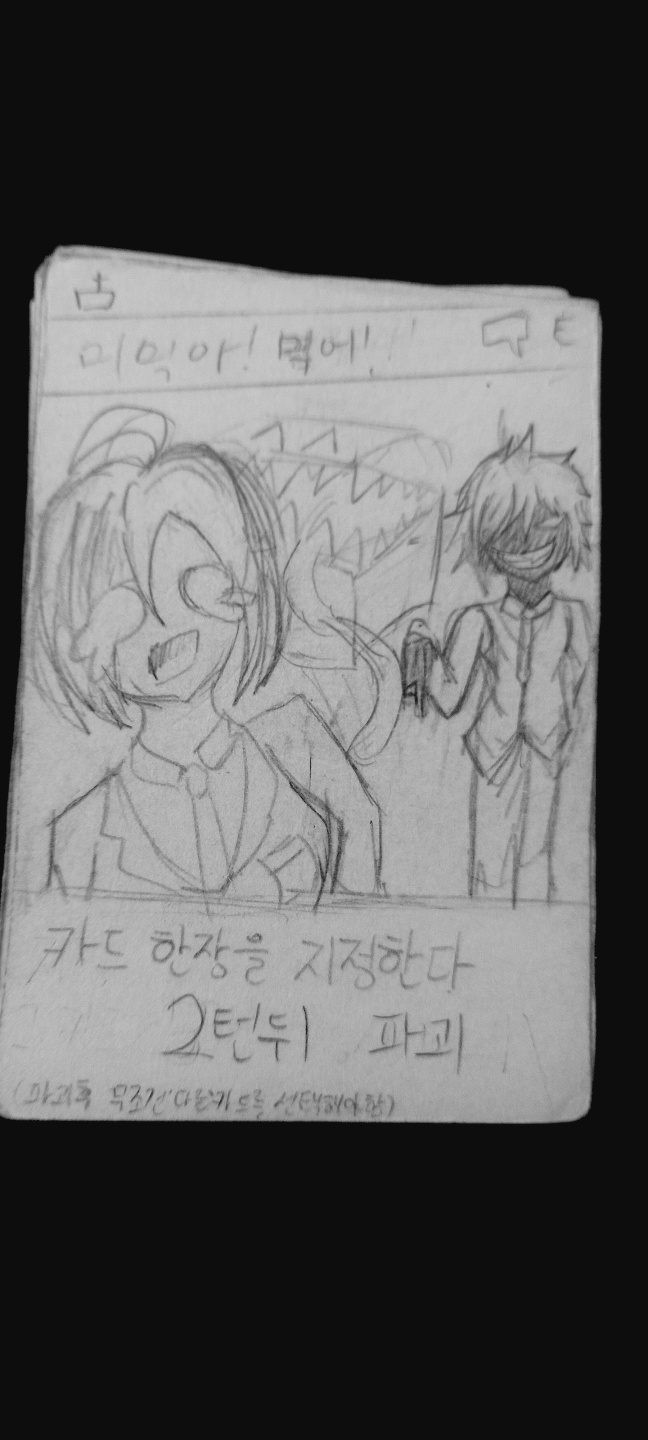 미믹아! 먹어!!
카드 한장을 지정한다
2턴뒤 파괴
(파괴후 무조건 다른카드를 선택해야함)